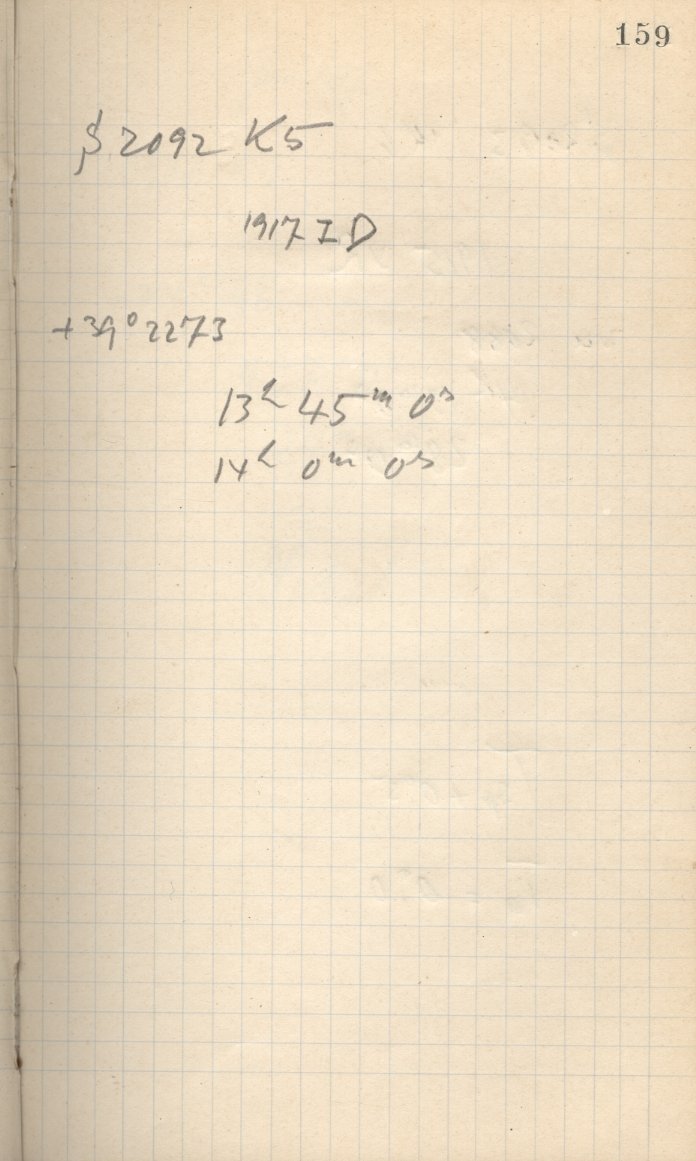 159
$ 2092 K5
1917 I D
+39° 2273
13h 45m 0s
14h 0m 0s